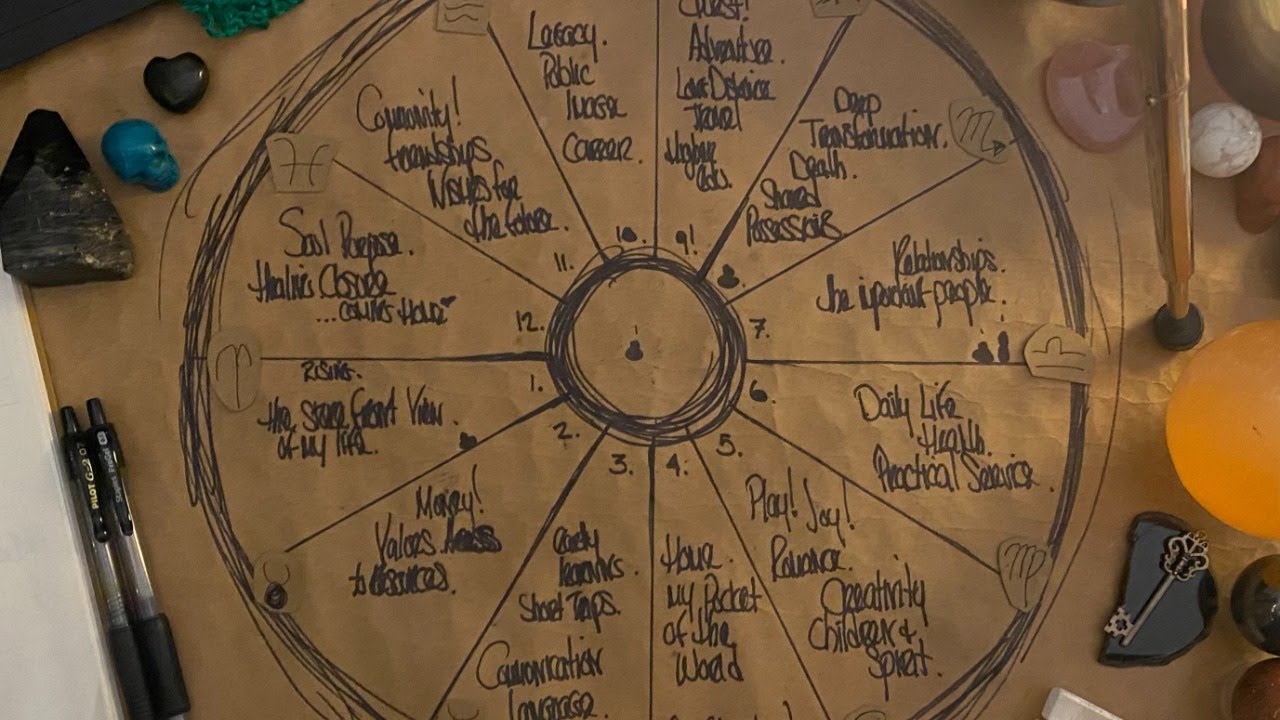 Quest!
Adventure.
Long Distance
Travel
Higher
edu.
9!
Legacy.
Public
Image
Career.
10.
Community!
friendships
Wishes for
the future.
11.
Soul Purpose.
Healing Closure
...coming Home
12.
Rising.
the Store front View
of my life.
1.
Money!
Values
to Resources.
2.
early
learning.
Short Trips.
Communication
Language.
3.
Home.
My Pocket
of the
World
4.
Play! Joy!
Romance.
Creativity
Children &
Spirit.
5.
Daily Life
Health.
Practical Service.
6.
Relationships.
the important people.
7.
Deep
Transformation.
Death.
Shared
Possessions.
PILOT G-2 07